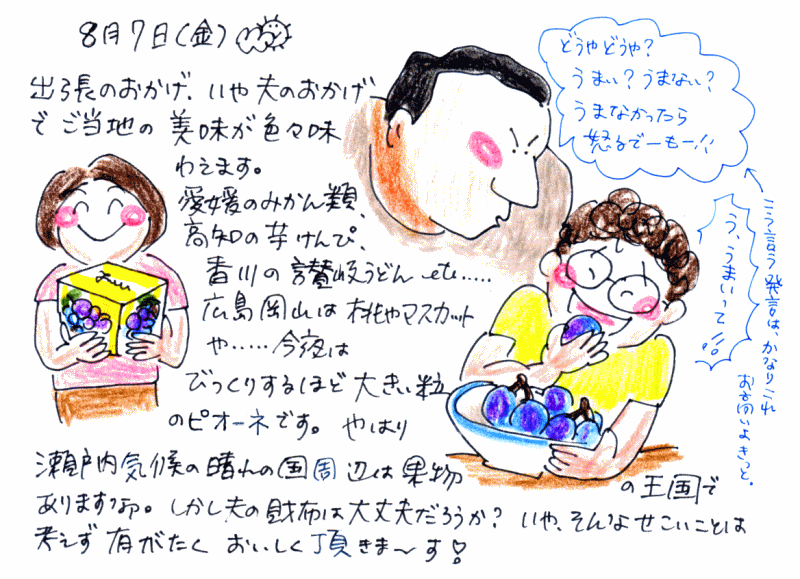 8月7日(金)
出張のおかげ、いや夫のおかげ
でご当地の美味が色々味
わえます。
愛媛のみかん類、
高知の芋けんぴ、
香川の讃岐うどん etc.....
広島岡山は桃やマスカット
や……今夜は
びっくりするほど大きい粒
のピオーネです。やはり
瀬戸内気候の晴れの国周辺は果物の王国で
ありますなア。しかし夫の財布は大丈夫だろうか? いや、そんなせこいことは
考えず有がたくおいしく頂きま〜す!
どうやどうや?
うまい?うまない?
うまなかったら
怒るでーもー!!
う、うまいって!!
こう言う発言は、かなりこれ
お高いよきっと。